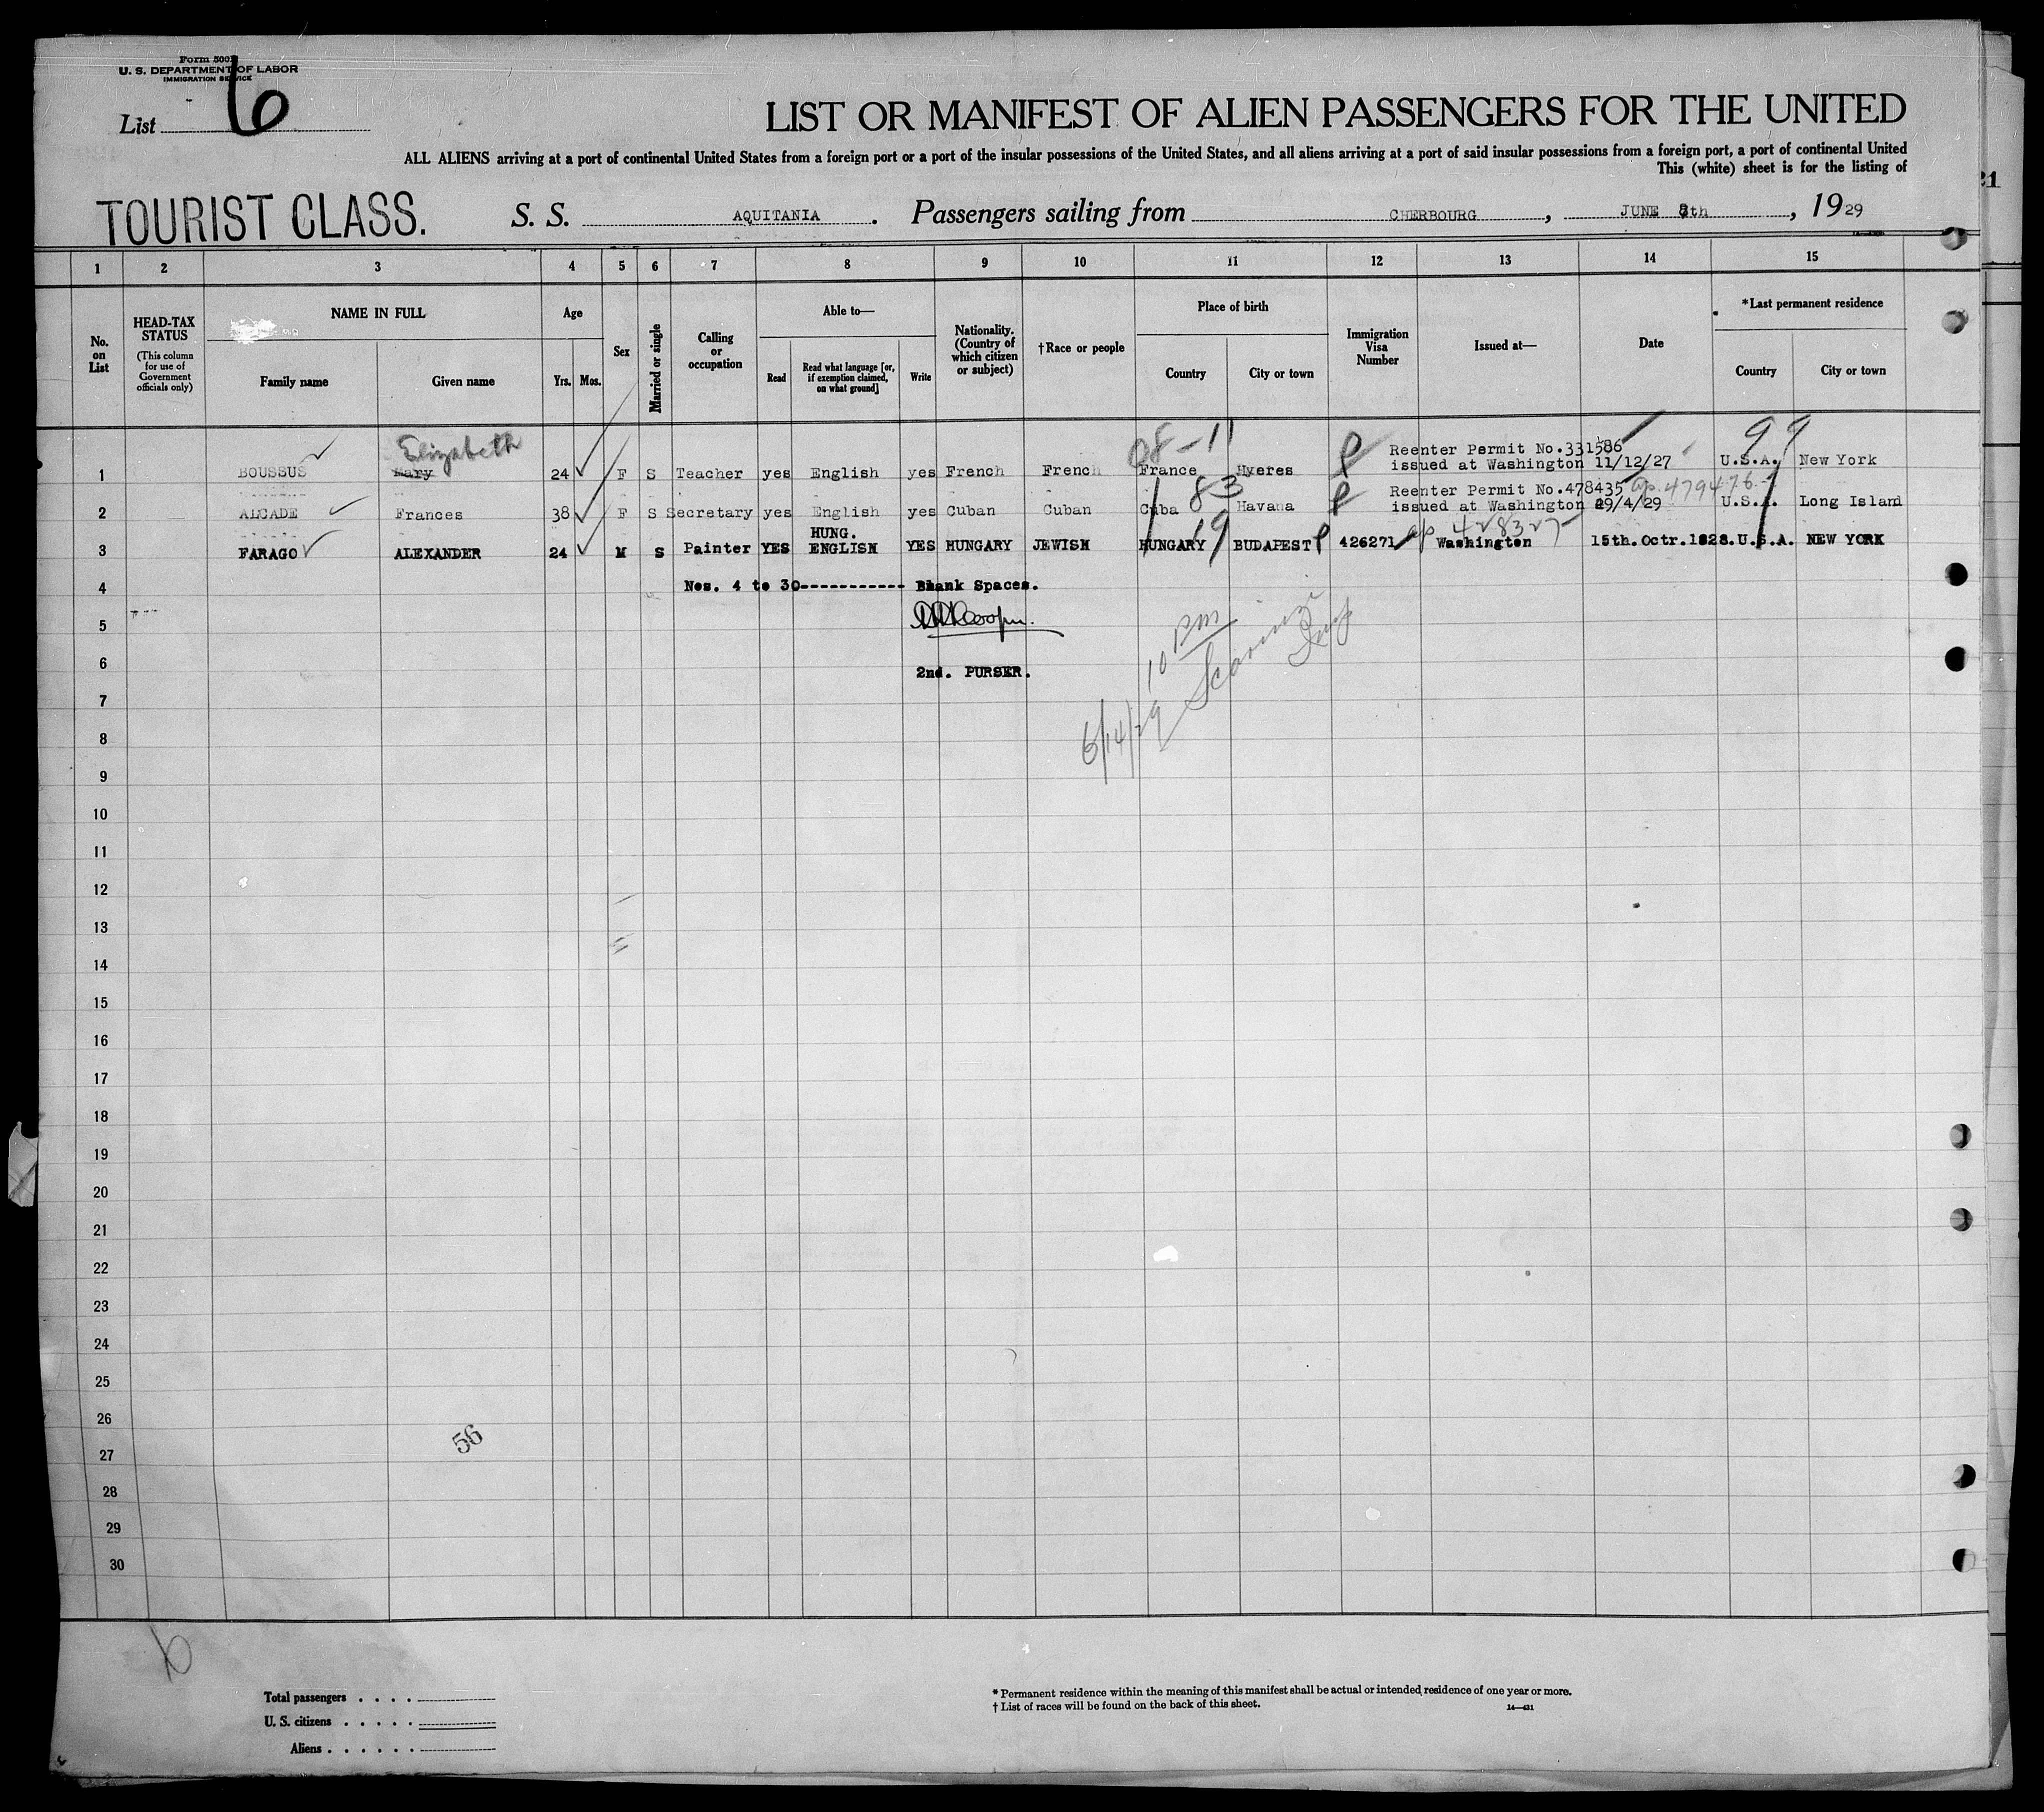 Form 500
U. S. DEPARTMENT OF LABOR
IMMIGRATION SERVICE
List 6
LIST OR MANIFEST OF ALIEN PASSENGERS FOR THE UNITED
ALL ALIENS arriving at a port of continental United States from a foreign port or a port of the insular possessions of the United States, and all aliens arriving at a port of said insular possessions from a foreign port, a port of continental United
This (white) sheet is for the listing of
TOURIST CLASS. S. S. AQUITANIA. Passengers sailing from CHERBOURG, JUNE 8th, 1929
1 2 3 4 5 6 7 8 9 10 11 12 13 14 15
No. on List
HEAD-TAX STATUS
(This column for use of Government officials only)
NAME IN FULL
Family name
Given name
Age
Yrs. Mos.
Sex
Married or single
Calling or occupation
Able to—
Read
Read what language [or, if exemption claimed, on what ground]
Write
Nationality. (Country of which citizen or subject)
†Race or people
Place of birth
Country
City or town
Immigration Visa Number
Issued at—
Date
*Last permanent residence
Country
City or town
Elizabeth 08-11 99
Reenter Permit No.331586
1 BOUSSUS Mary 24 F S Teacher yes English yes French French France Hyeres issued at Washington 11/12/27 U.S.A. New York
83 Reenter Permit No.478435 ap. 479476
2 ALCADE Frances 38 F S Secretary yes English yes Cuban Cuban Cuba Havana issued at Washington 29/4/29 U.S.A. Long Island
HUNG. 19 ap 428327
3 FARAGO ALEXANDER 24 M S Painter YES ENGLISH YES HUNGARY JEWISH HUNGARY BUDAPEST 426271 Washington 15th. Octr. 1928. U.S.A. NEW YORK
4 Nos. 4 to 30----------- Blank Spaces.
5
6 2nd. PURSER.
10 PM
6/14/29
Insp
7
8
9
10
11
12
13
14
15
16
17
18
19
20
21
22
23
24
25
26
56
27
28
29
30
6
Total passengers
U. S. citizens
Aliens
* Permanent residence within the meaning of this manifest shall be actual or intended residence of one year or more.
† List of races will be found on the back of this sheet.
14—421